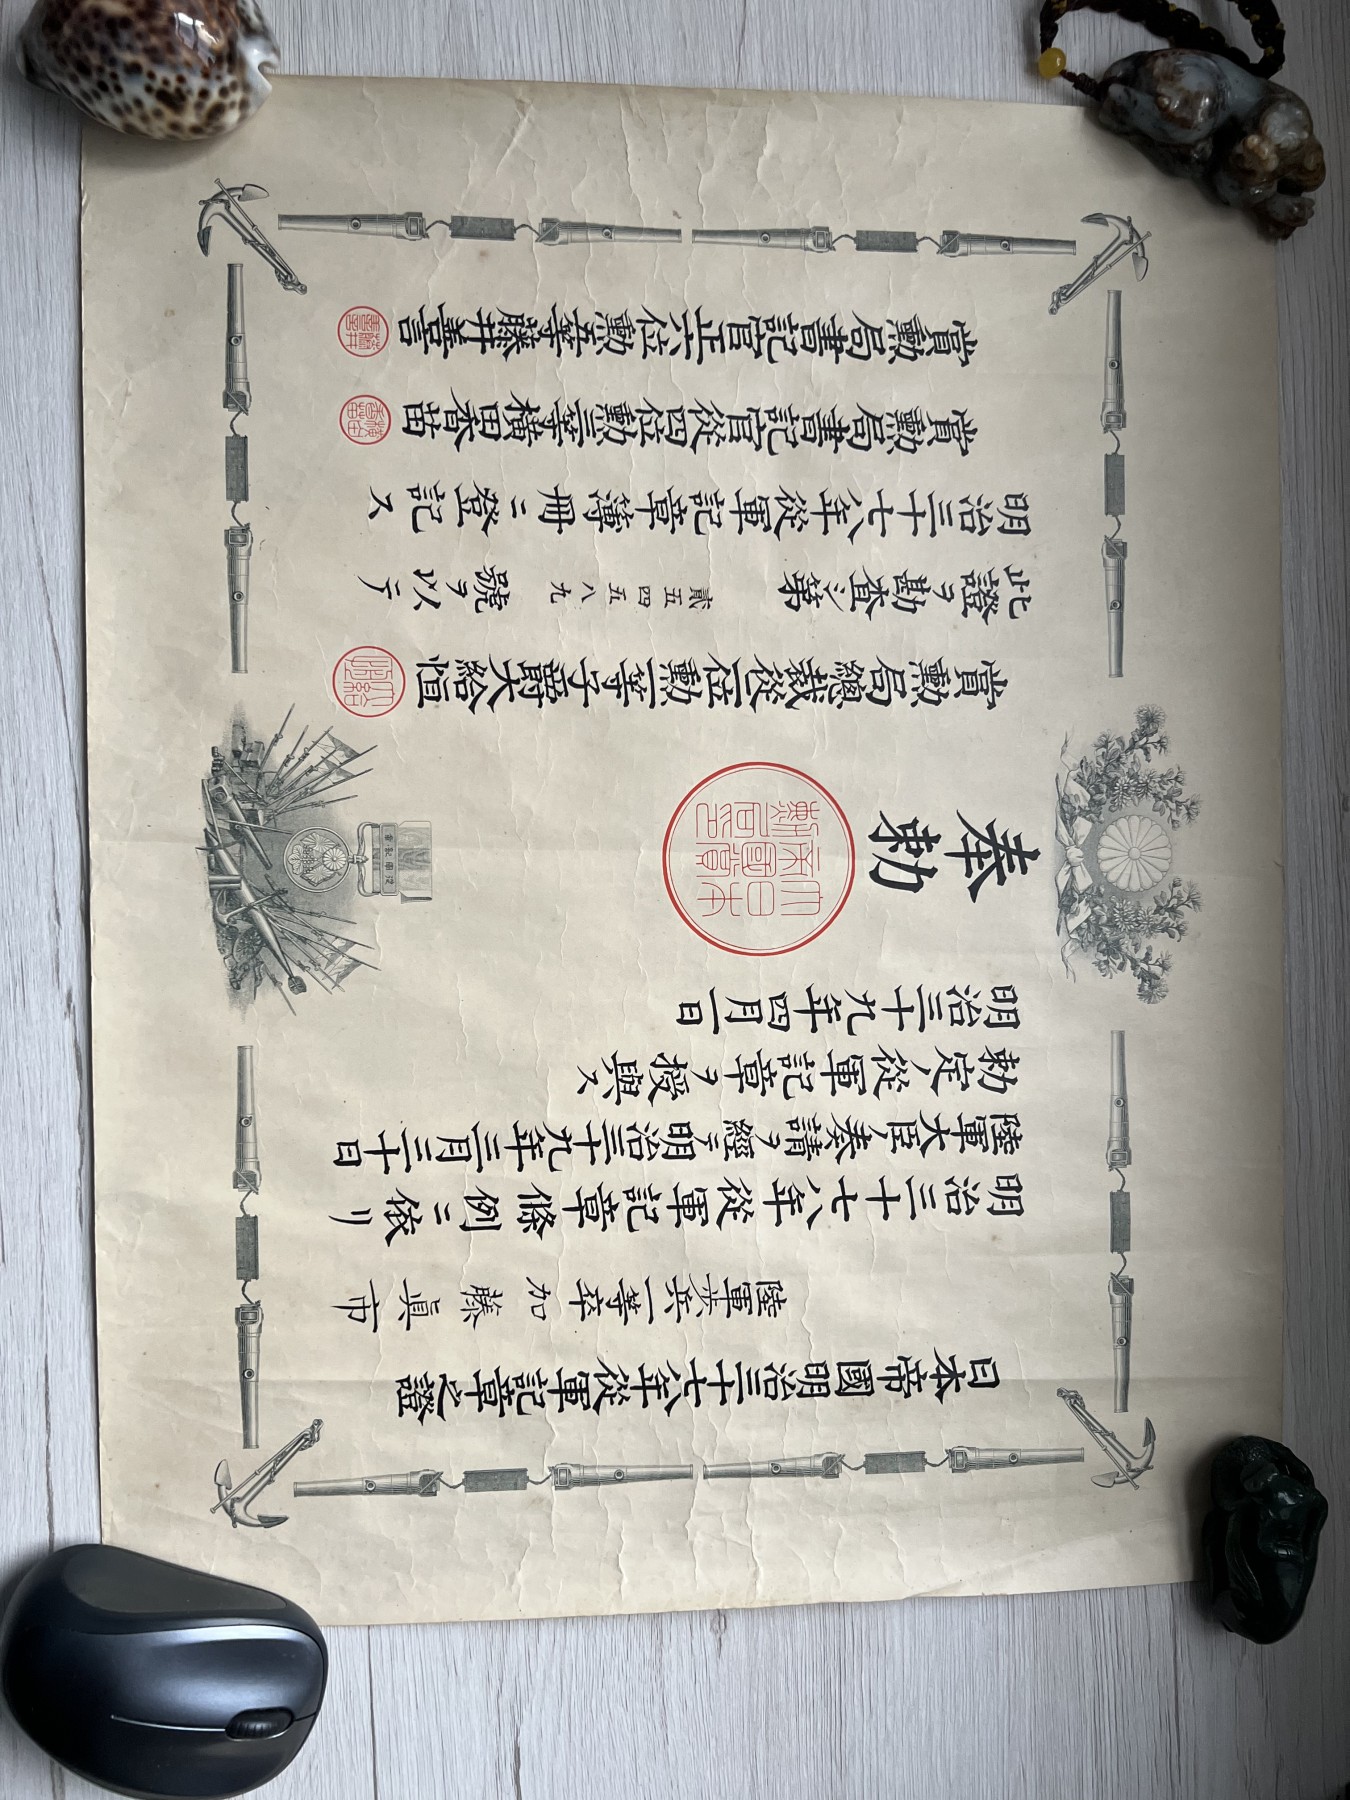 日本帝國明治三十七八年從軍記章之證
陸軍歩兵一等卒 加藤眞市
明治三十七八年從軍記章條例ニ依リ
陸軍大臣ノ奏請ヲ經テ明治三十九年三月三十日
勅定ノ從軍記章ヲ授與ス
明治三十九年四月一日
奉勅
大日本
帝國賞
勲局印
從軍記章
賞勲局總裁從二位勲一等子爵大給恒
此證ヲ勘査シ第貳五四五八九號ヲ以テ
明治三十七八年從軍記章簿冊ニ登記ス
賞勲局書記官從四位勲三等横田香苗
賞勲局書記官正六位勲五等藤井善言